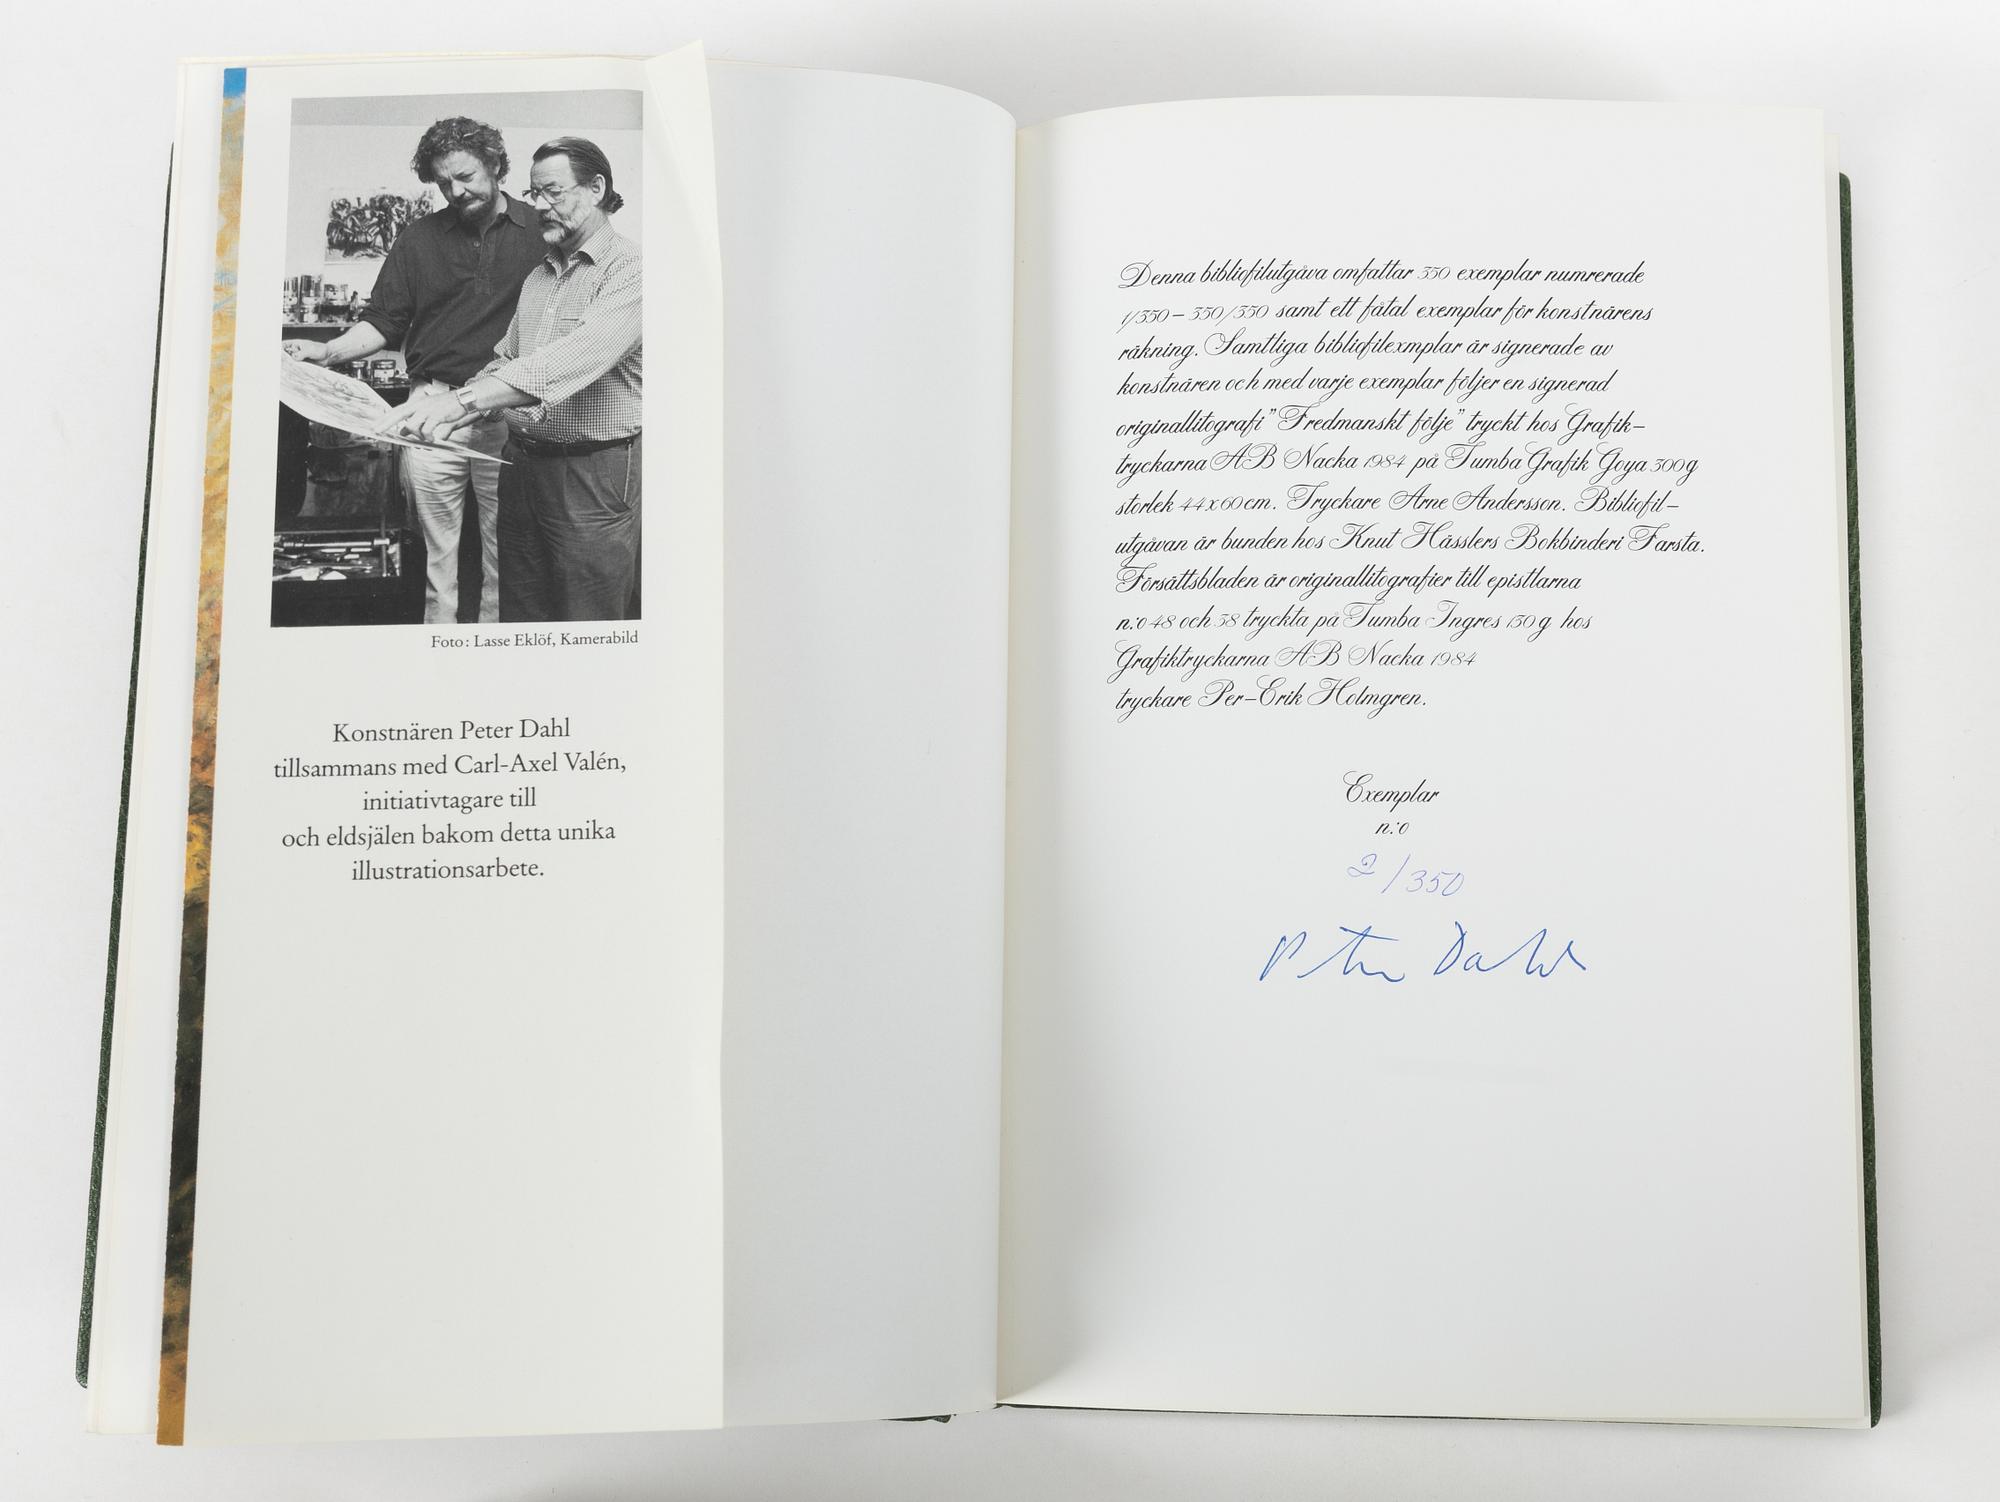 Foto: Lasse Eklöf, Kamerabild
Konstnären Peter Dahl
tillsammans med Carl-Axel Valén,
initiativtagare till
och eldsjälen bakom detta unika
illustrationsarbete.
Denna bibliofilutgåva omfattar 350 exemplar numrerade
1/350 – 350/350 samt ett fåtal exemplar för konstnärens
räkning. Samtliga bibliofilexmplar är signerade av
konstnären och med varje exemplar följer en signerad
originallitografi "Fredmanskt följe" tryckt hos Grafik–
tryckarna AB Nacka 1984 på Tumba Grafik Goya 300g
storlek 44x60cm. Tryckare Arne Andersson. Bibliofil–
utgåvan är bunden hos Knut Hässlers Bokbinderi Farsta.
Försättsbladen är originallitografier till epistlarna
n:o 48 och 38 tryckta på Tumba Ingres 130g hos
Grafiktryckarna AB Nacka 1984
tryckare Per–Erik Holmgren.
Exemplar
n:o
2/350
Peter Dahl